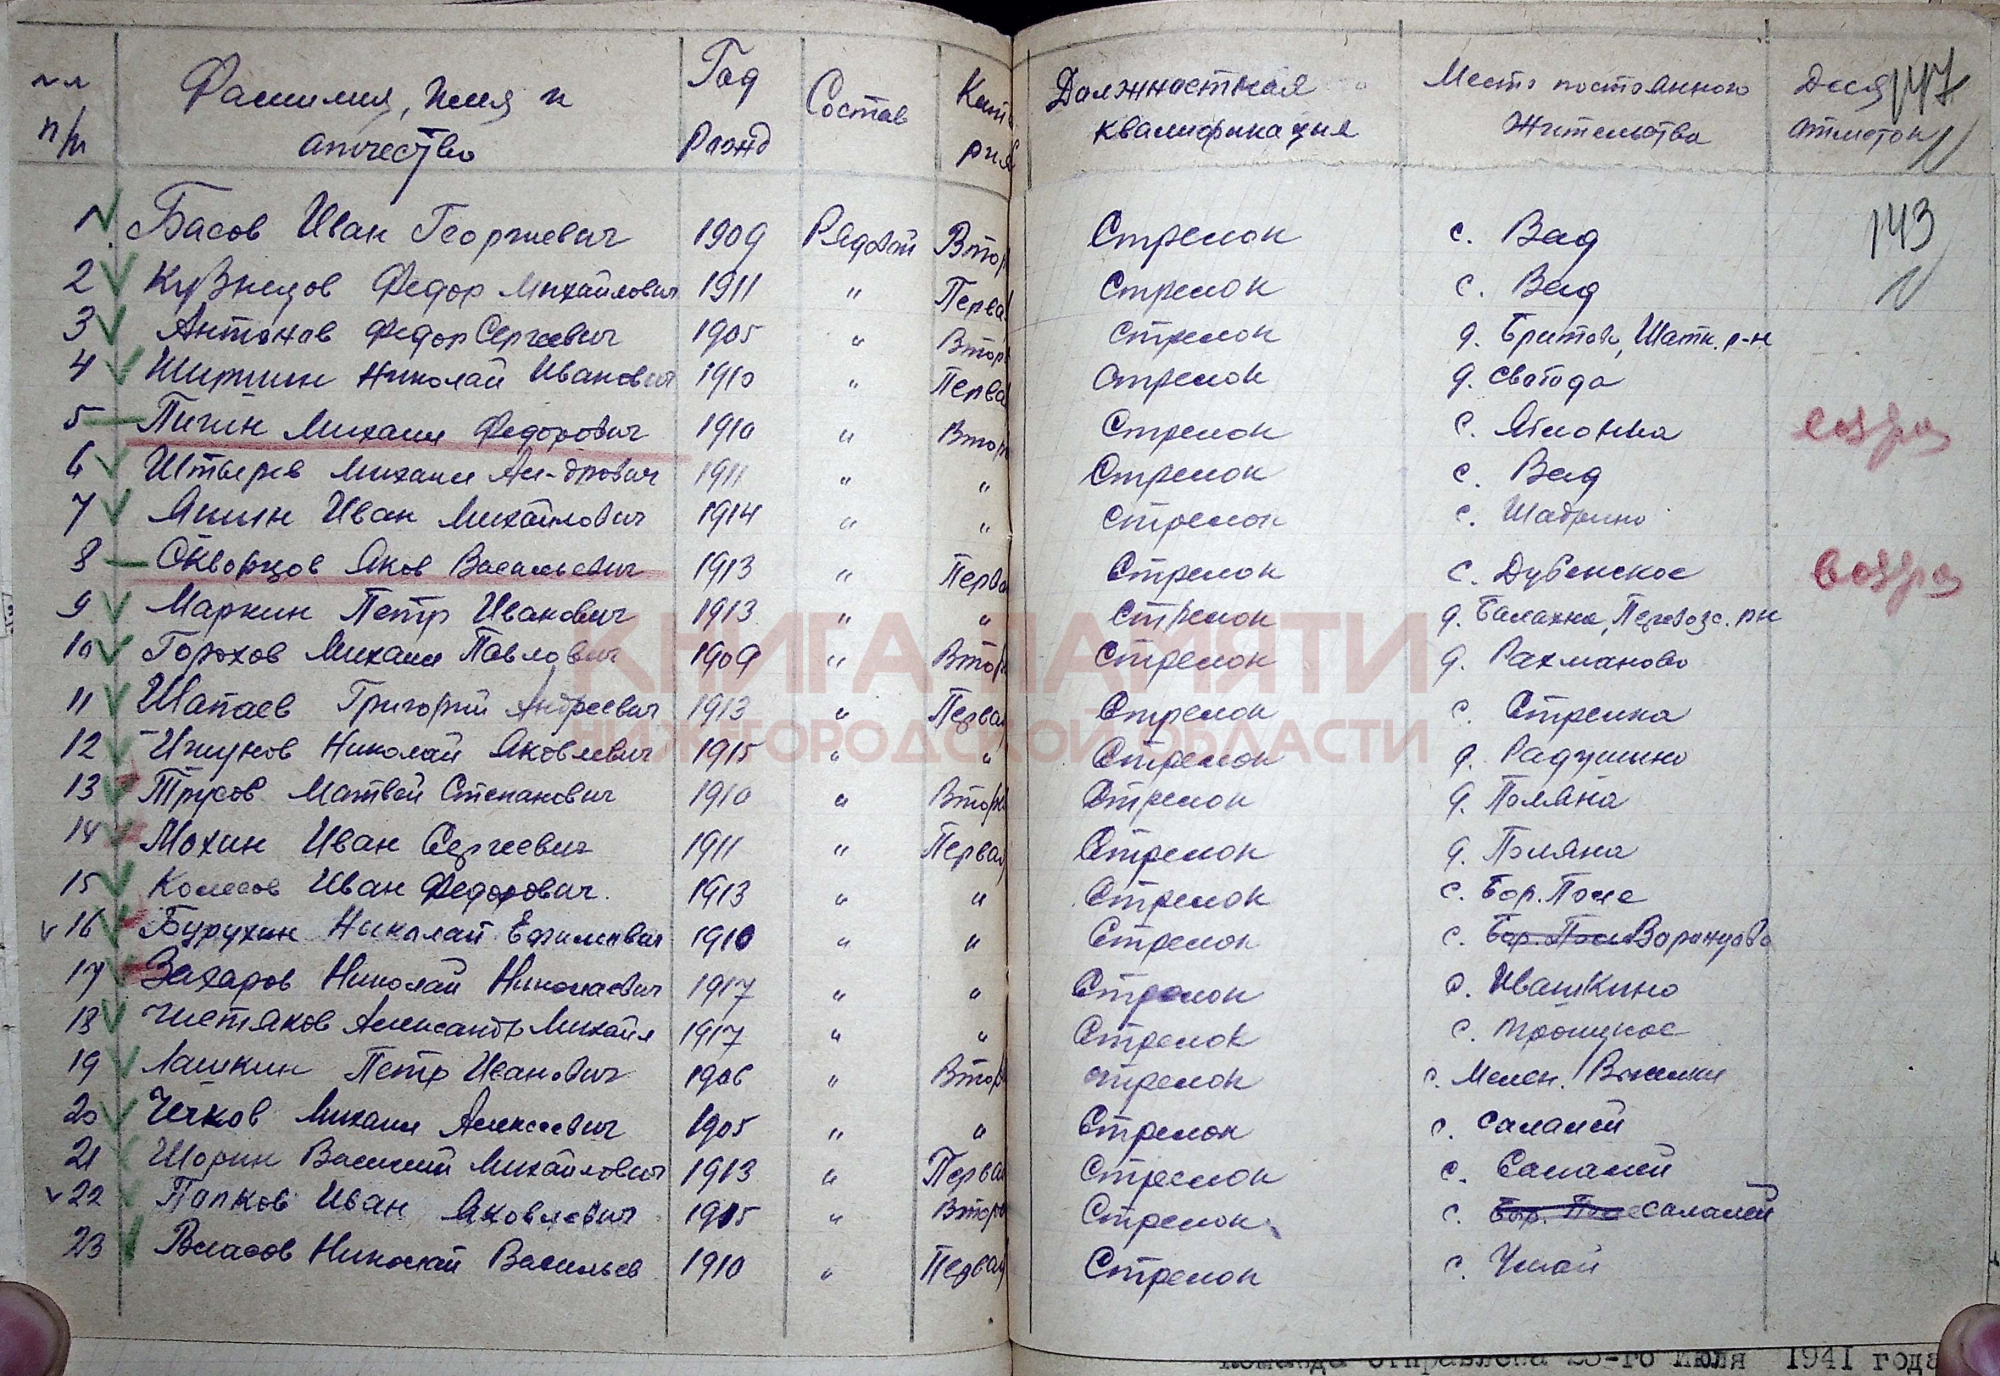 № № п/п Фамилия, имя и отчество Год рожд Состав Катего рия Должностная квалификация Место постоянного жительства Для отметок 147
143
1 Басов Иван Георгиевич 1909 Рядовой Втор Стрелок с. Вад
2 Кузнецов Федор Михайлович 1911 " Первая Стрелок с. Вад
3 Антонов Федор Сергеевич 1905 " Втор Стрелок д. Бритов, Шатк. р-н
4 Ширшин Николай Иванович 1910 " Перва Стрелок д. Свобода
5 Пигин Михаил Федорович 1910 " Втор Стрелок с. Яблонка возвра
6 Штырев Михаил Ал-дрович 1911 " " Стрелок с. Вад
7 Яшин Иван Михайлович 1914 " " Стрелок с. Шадрино
8 Скворцов Яков Васильевич 1913 " Перва Стрелок с. Дубенское возвра
9 Маркин Петр Иванович 1913 " " Стрелок д. Балахна, Перевозс. рн
10 Горохов Михаил Павлович 1909 " Втор Стрелок д. Рахманово
11 Шапаев Григорий Андреевич 1913 " Первая Стрелок с. Стрелка
КНИГА ПАМЯТИ
НИЖЕГОРОДСКОЙ ОБЛАСТИ
12 Николай Яковлевич 1915 " " Стрелок д. Радушино
13 Трусов Матвей Степанович 1910 " Втора Стрелок д. Поляна
14 Мохин Иван Сергеевич 1911 " Первая Стрелок д. Поляна
15 Колесов Иван Федорович. 1913 " " Стрелок с. Бор. Поле
16 Бурухин Николай Ефимович 1910 " " Стрелок с. Бор. Поле Воронцово
17 Захаров Николай Николаевич 1917 " " Стрелок с. Ивашкино
18 Чистяков Александр Михайл 1917 " " Стрелок с. Троицкое
19 Лашкин Петр Иванович 1906 " Втор Стрелок с. Мелен. Выселки
20 Чичков Михаил Алексеевич 1905 " " Стрелок с. Салалей
21 Шорин Василий Михайлович 1913 " Первая Стрелок с. Салалей
22 Папков Иван Яковлевич 1905 " Втора Стрелок с. Бор. Поле Салалей
23 Власов Николай Васильев 1910 " Первая Стрелок с. Умай
Команда отправлена 23-го Июля 1941 года